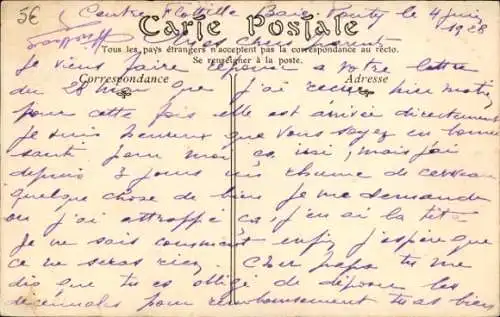 5€ Centre Flottille Baie Ponty le 4 juin
1928
Carte Postale
Mes chers parents
Tous les pays étrangers n'acceptent pas la correspondance au recto.
Se renseigner à la poste.
Je viens faire réponse a votre lettre
Correspondance Adresse
du 28 mai que j'ai recue hier matin
pour cette fois elle est arrivée directement
je suis heureux que vous soyez en bonne
santé pour moi ça issi, mais j'ai
depuis 3 jours un rhume de cerveau
quelque chose de bien je me demande
ou j'ai attroppé ça, j'en ai la tête
Je ne sais comment enfin j'espère que
ce ne seras rien. Cher papa tu me
dis que tu es obligé de déposer les
décennales pour remboursement tu as bien